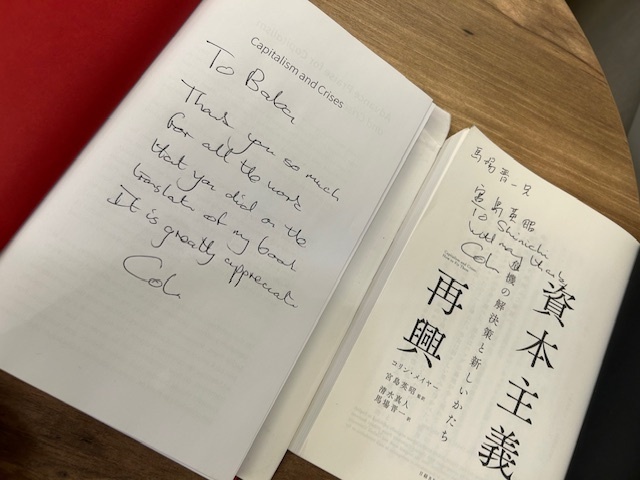 Capitalism and Crises
To Baba
Thank you so much
for all the work
that you did on the
translation of my book
It is greatly appreciated
Colin
馬場晋一兄
宮島英昭
To Shinichi
with many thanks
Colin
資本主義
再興
危機の解決策と新しいかたち
コリン・メイヤー
宮島英昭 監訳
清水真人
馬場晋一 訳